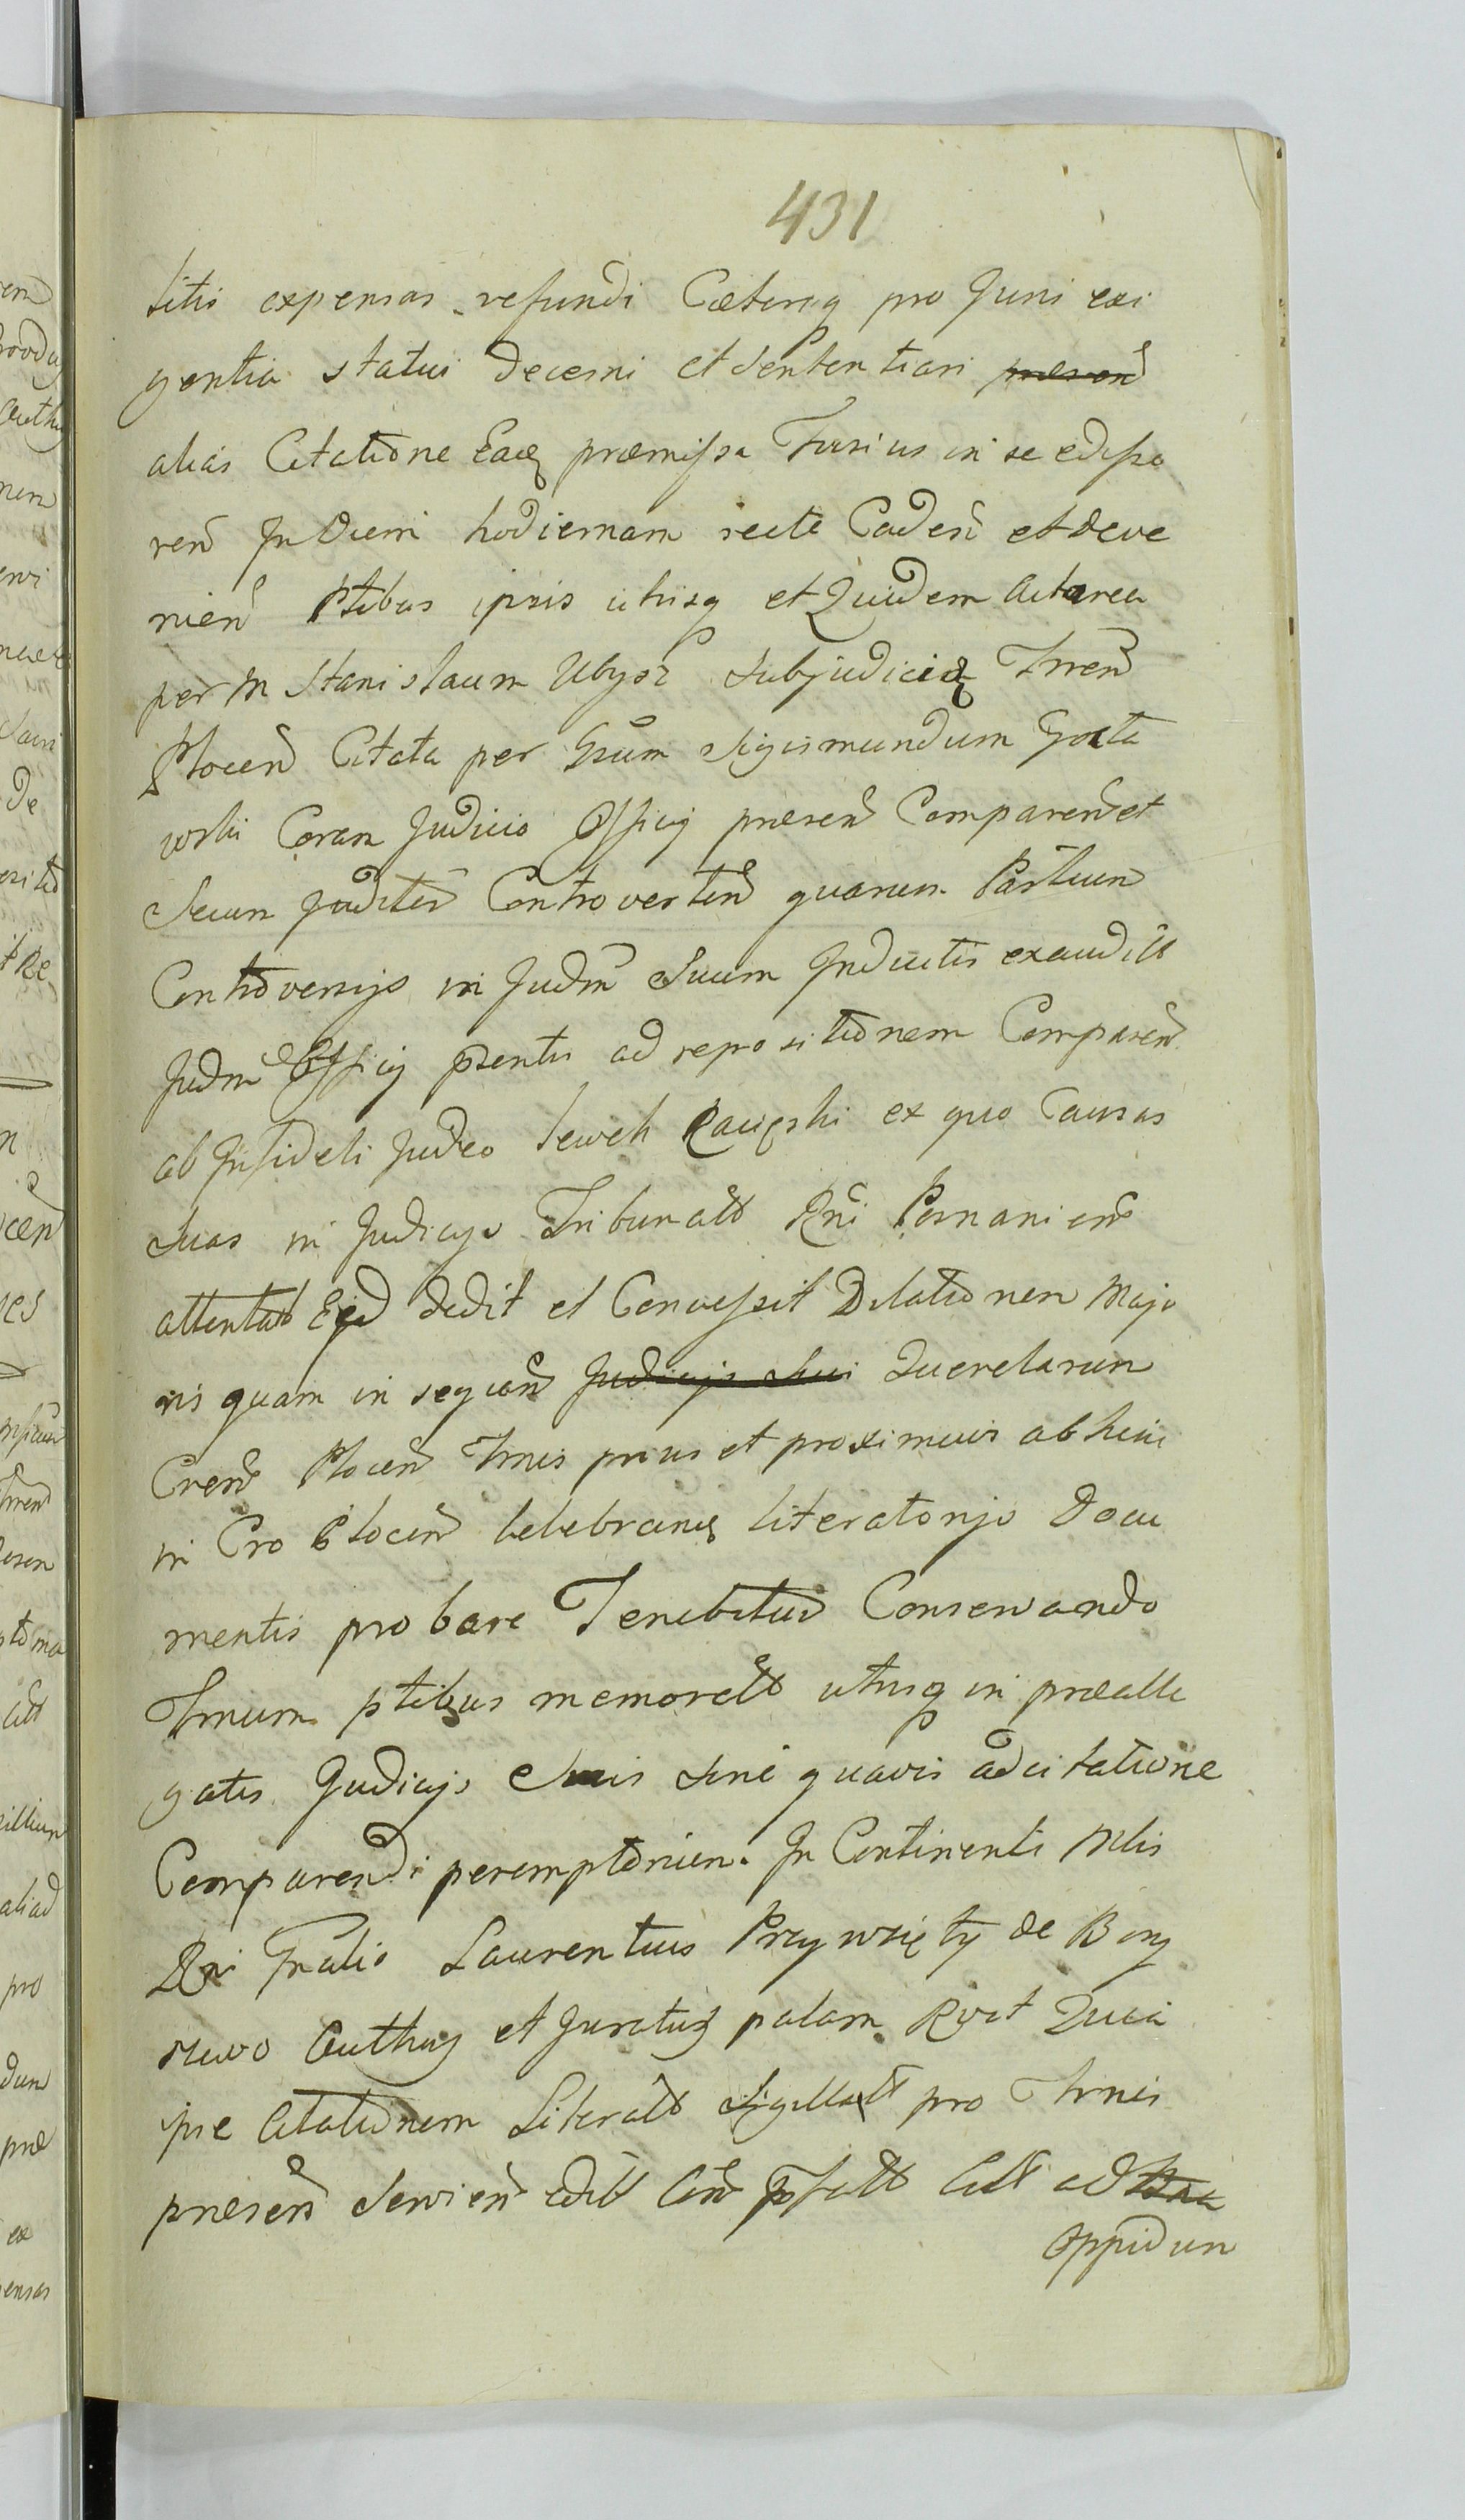 431
litis expensas refundi Cæteraq pro Juris exi
gentia statui decerni et sententiari præsen
alias Citatione Eaq præmissa Fusius in se edisse
ren In Diem hodiernam recte Caden et deve
nien Ptibus ipsis utrisq et Quidem Actorea
per M Stanislaum Ubysz Subjudicią Trren
Plocen Citata per Gsum Sigismundum Gosta
wski Coram Judicio Officij præsen Comparen et
Secum Juditer Controverten quarum Partium
Controversijs in Judm Suum Inductis exaudit
Judm Officij psentis ad repositionem Comparen
ab Infideli Judeo Lewek ex quo Causas
Suas in Judicijs Tribunalt Rni Posnanien
attentat Ejd dedit et Concessit Dilationem Majo
ris quam in sequen Judicijs Sui Querelarum
Cren Plocen Trnis prius et proximius ab hinc
in Cro Plocen Celebranq literatorijs Docu
mentis probare Tenebitur Conservando
Trnum ptibus memoratt utrisq in præalle
gatis Judicijs Suis Sine quavis adcitatione
Comparendi peremptorium. In Continenti Mlis
Rni Gnalis Laurentius Przywzięty de Borz
szewo Authus et Juratus palam Rvit Quia
ipse Citationem Literatt Sigillatt pro Trnis
præsen Servien Edit ad
Oppidum